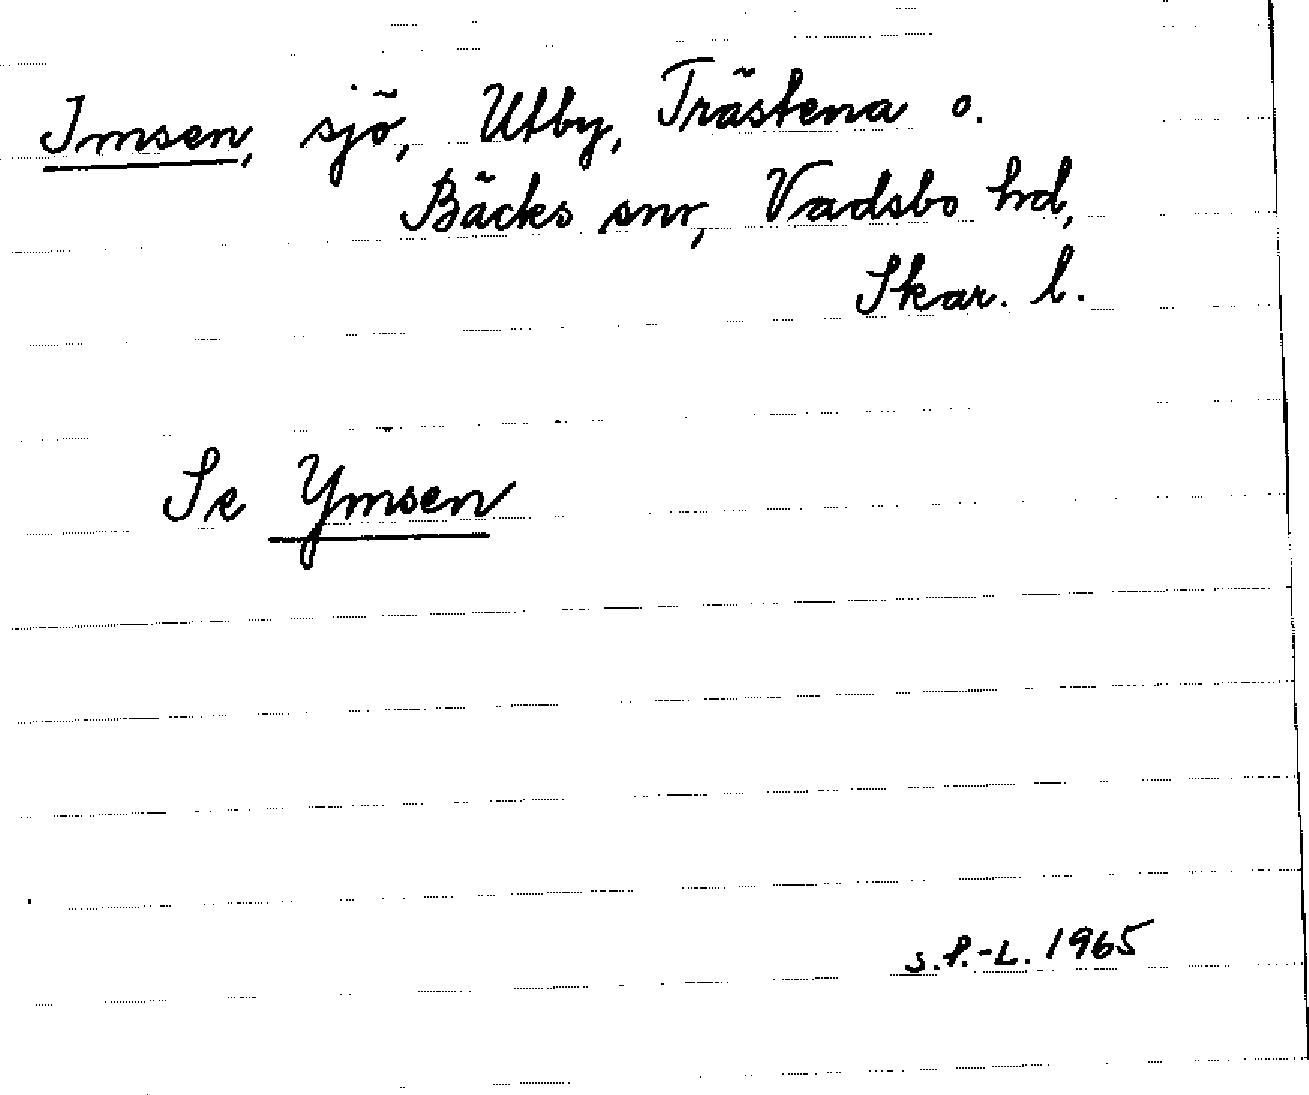 Imsen, sjö, Utby, Trästena o.
Bäcks snr, Vadsbo hd,
Skar. l.
Se Ymsen
S.P.-L. 1965